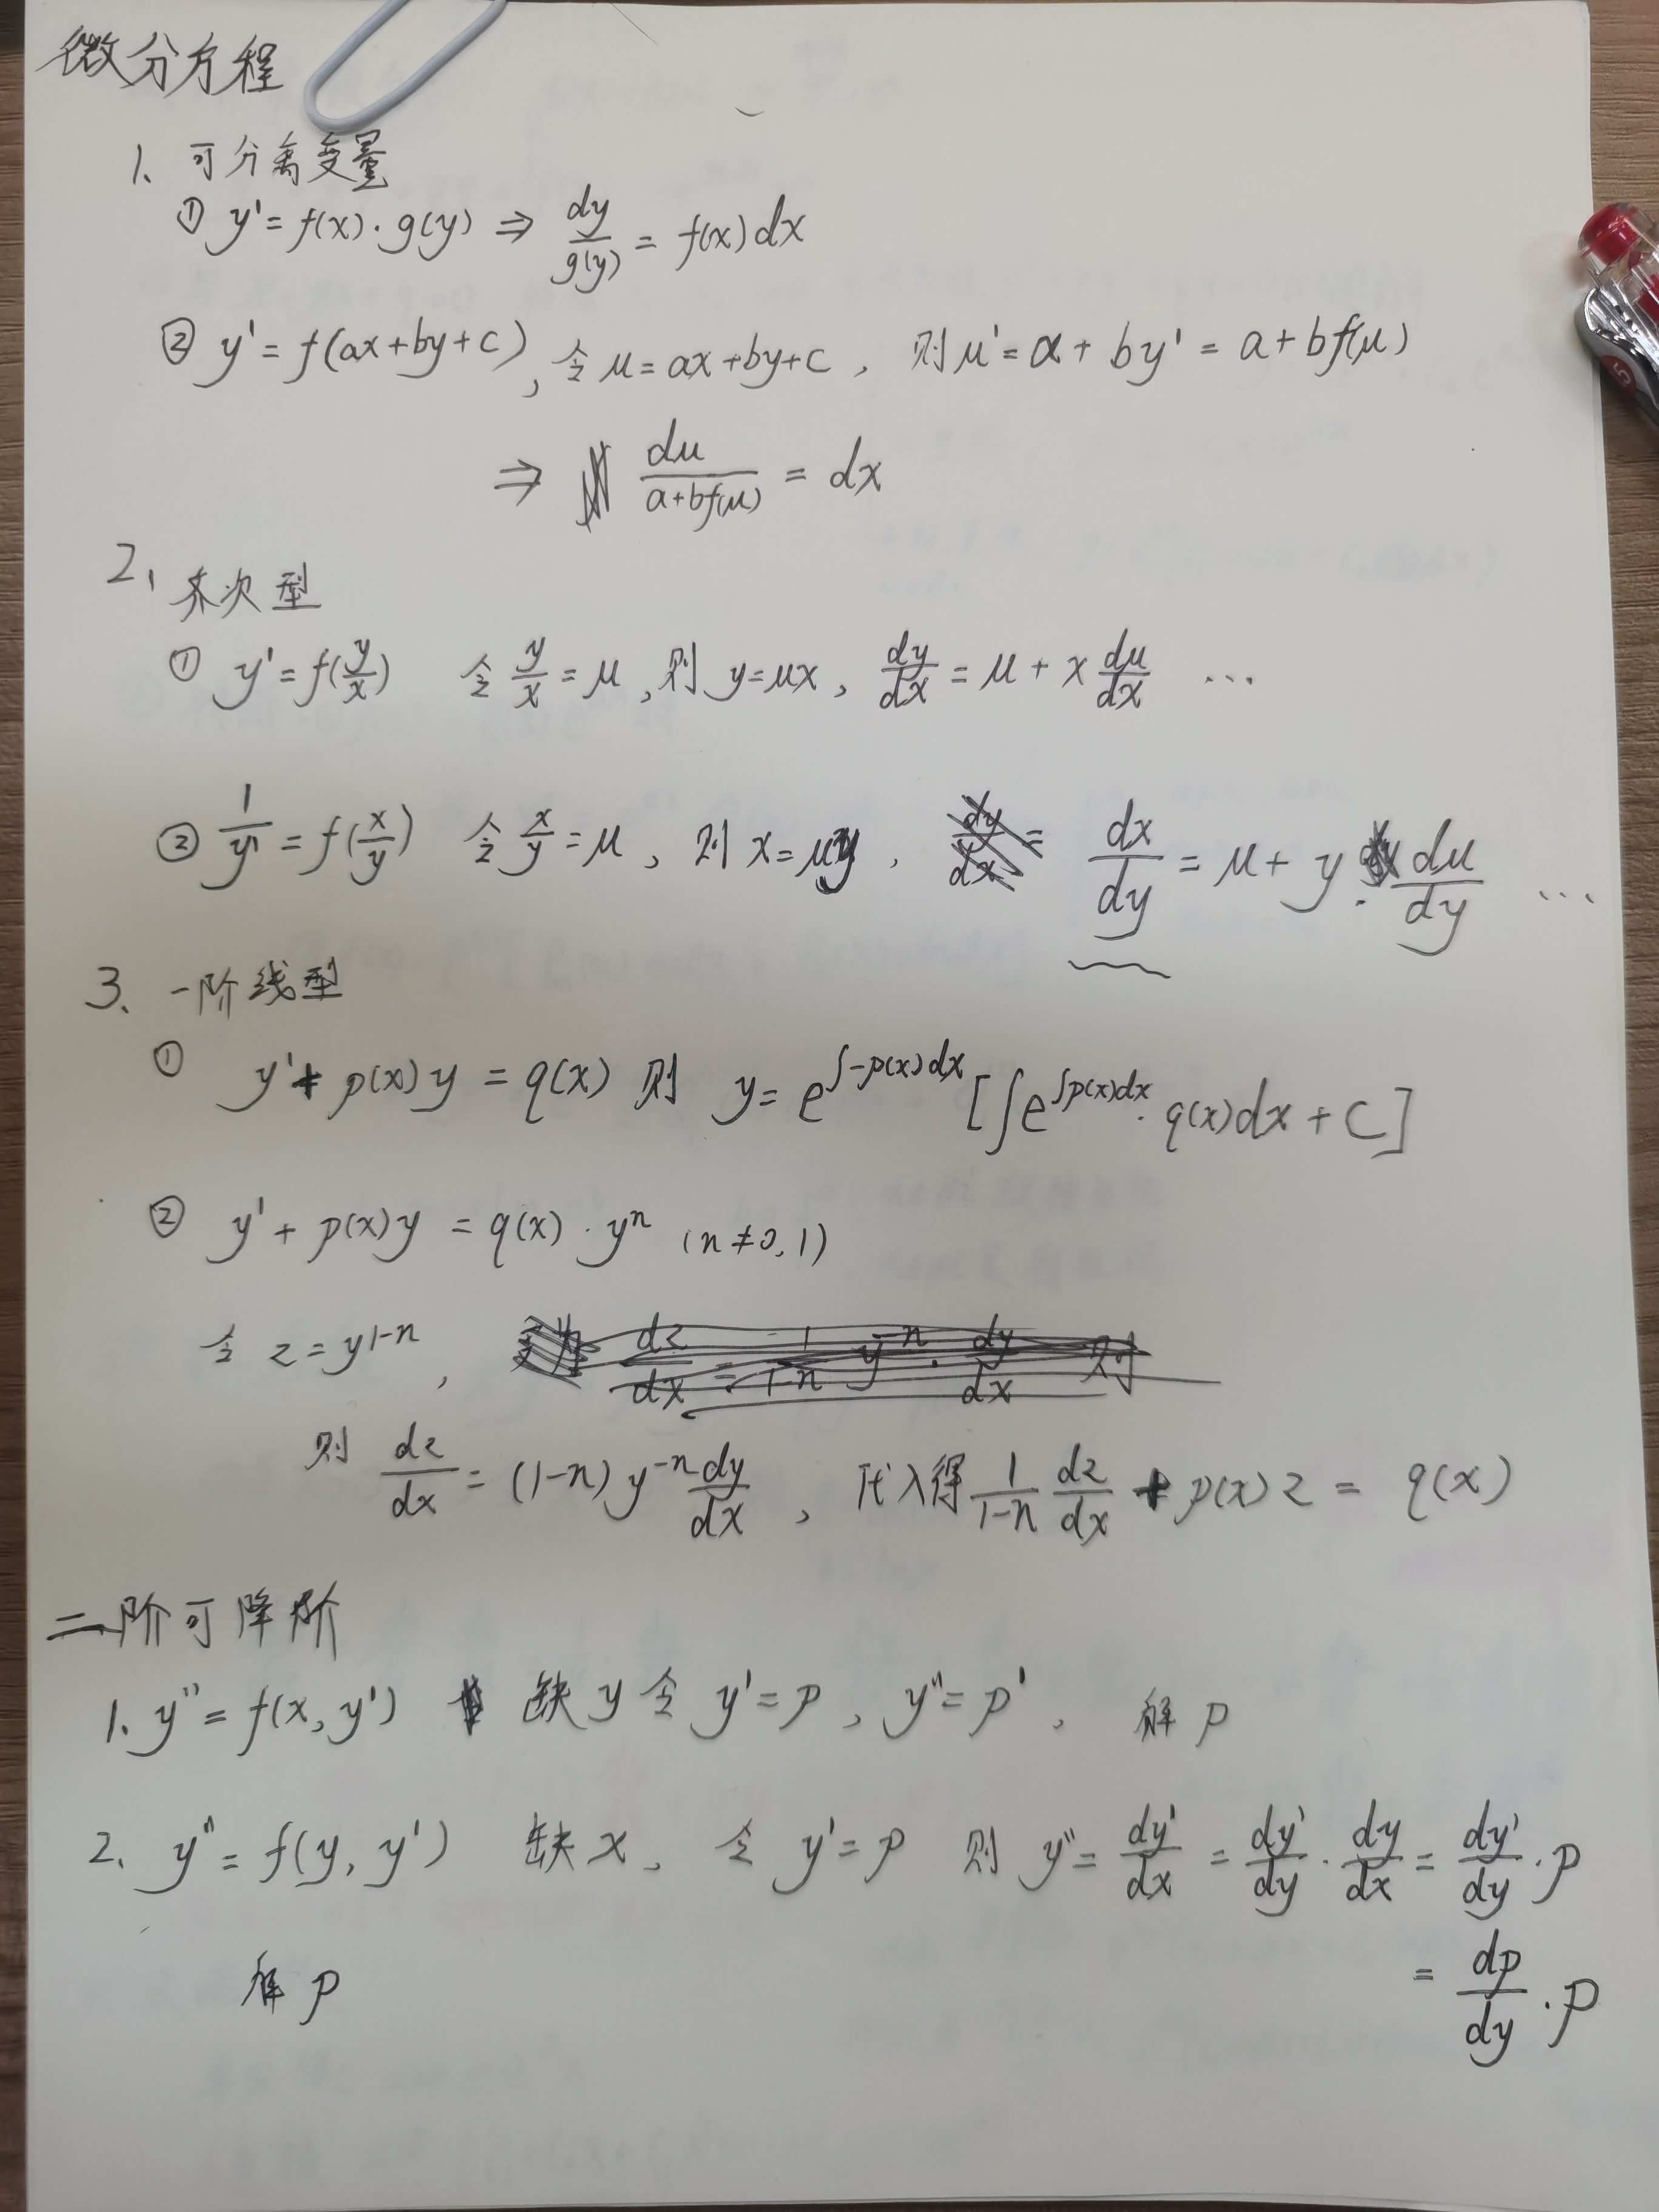 微分方程
1、可分离变量
① y' = f(x)·g(y) ⇒ dy/g(y) = f(x)dx
② y' = f(ax+by+c), 令 μ = ax+by+c, 则 μ' = a + by' = a+bf(μ)
⇒ du/(a+bf(μ)) = dx
2、齐次型
① y' = f(y/x) 令 y/x = μ, 则 y=μx, dy/dx = μ + x du/dx ...
② 1/y' = f(x/y) 令 x/y = μ, 则 x=μy, dx/dy = μ + y·du/dy ...
3、一阶线型
① y' + p(x)y = q(x) 则 y = e^{∫-p(x)dx} [∫e^{∫p(x)dx}·q(x)dx + C]
② y' + p(x)y = q(x)·y^n (n≠0,1)
令 z = y^{1-n},
则 dz/dx = (1-n)y^{-n} dy/dx, 代入得 1/(1-n) dz/dx + p(x)z = q(x)
二阶可降阶
1、y'' = f(x, y') 缺y 令 y' = p, y'' = p', 解 p
2、y'' = f(y, y') 缺x、令 y' = p 则 y'' = dy'/dx = dy'/dy · dy/dx = dy'/dy · p
= dp/dy · p
解 p
5